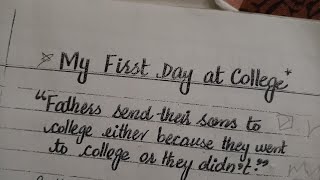 My First Day at College
“Fathers send their sons to
college either because they went
to college or they didn't.”